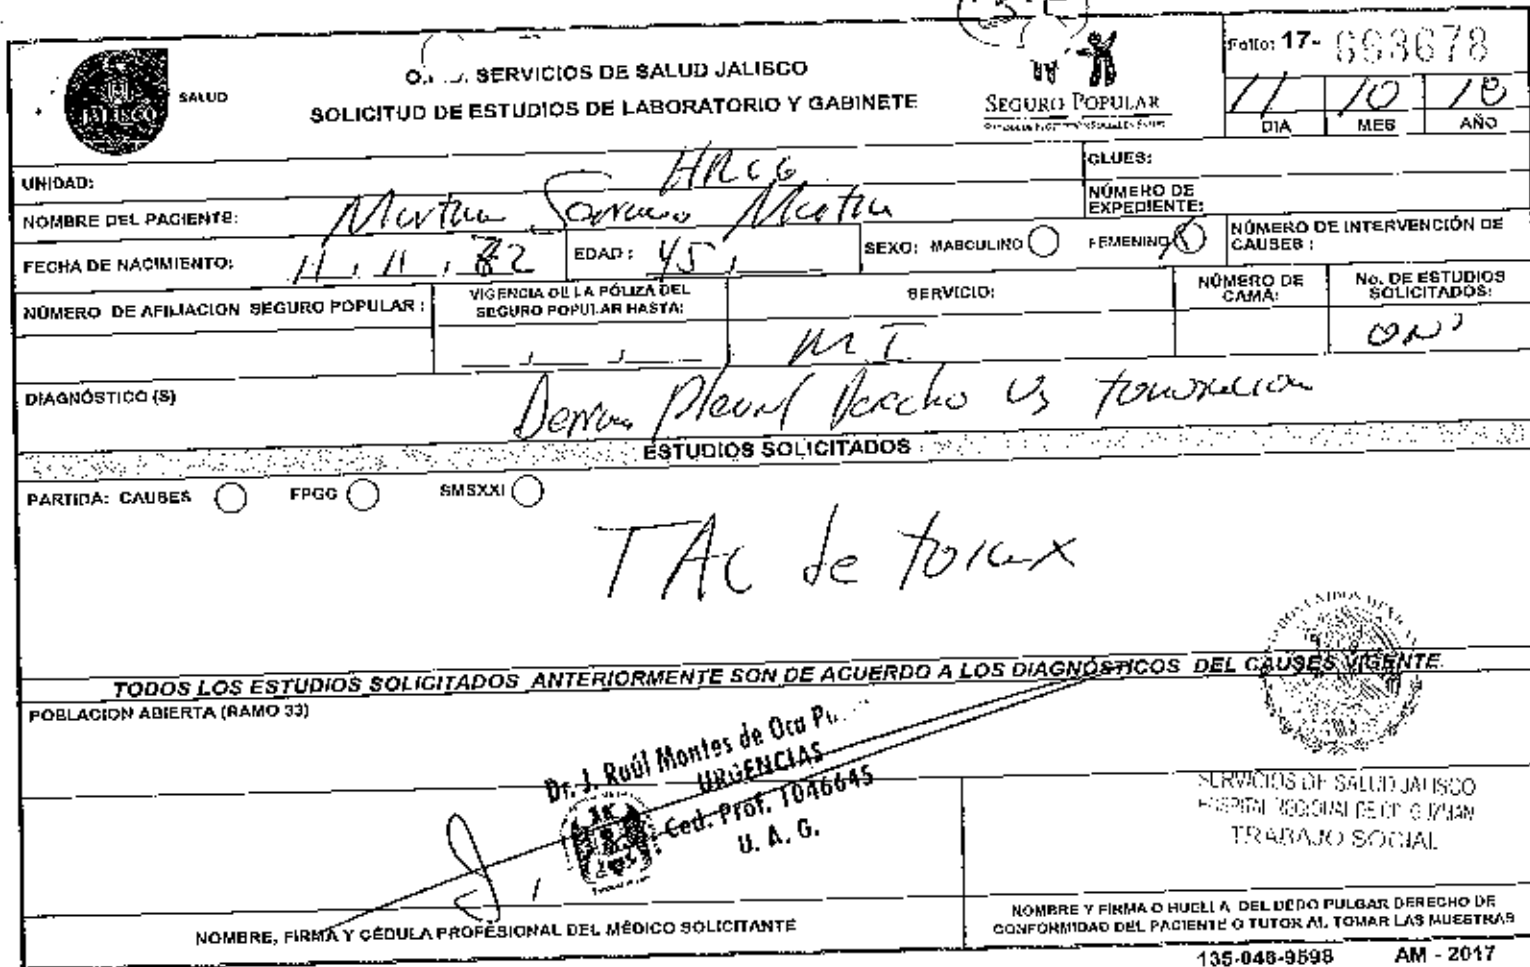 SALUD
JALISCO
SERVICIOS DE SALUD JALISCO
SOLICITUD DE ESTUDIOS DE LABORATORIO Y GABINETE
SEGURO POPULAR
Folio: 17- 693678
11 10 18
DIA MES AÑO
UNIDAD: HRCG
CLUES:
NOMBRE DEL PACIENTE: Martha
NÚMERO DE EXPEDIENTE:
FECHA DE NACIMIENTO: 11, 11, 82
EDAD: 45,
SEXO: MASCULINO FEMENINO
NÚMERO DE INTERVENCIÓN DE CAUSES :
NÚMERO DE AFILIACION SEGURO POPULAR :
VIGENCIA DE LA PÓLIZA DEL SEGURO POPULAR HASTA:
SERVICIO: MI
NÚMERO DE CAMA:
No. DE ESTUDIOS SOLICITADOS:
DIAGNÓSTICO (S)
Pleural Derecho Vs
ESTUDIOS SOLICITADOS
PARTIDA: CAUSES FPGC SMSXXI
TAC de torax
TODOS LOS ESTUDIOS SOLICITADOS ANTERIORMENTE SON DE ACUERDO A LOS DIAGNÓSTICOS DEL CAUSES VIGENTE.
POBLACION ABIERTA (RAMO 33)
Dr. J. Raúl Montes de Oca
URGENCIAS
Ced. Prof. 1046645
U. A. G.
SERVICIOS DE SALUD JALISCO
HOSPITAL REGIONAL DE CD. GUZMAN
TRABAJO SOCIAL
NOMBRE, FIRMA Y CÉDULA PROFESIONAL DEL MÉDICO SOLICITANTE
NOMBRE Y FIRMA O HUELLA DEL DEDO PULGAR DERECHO DE
CONFORMIDAD DEL PACIENTE O TUTOR AL TOMAR LAS MUESTRAS
135-046-9598 AM - 2017